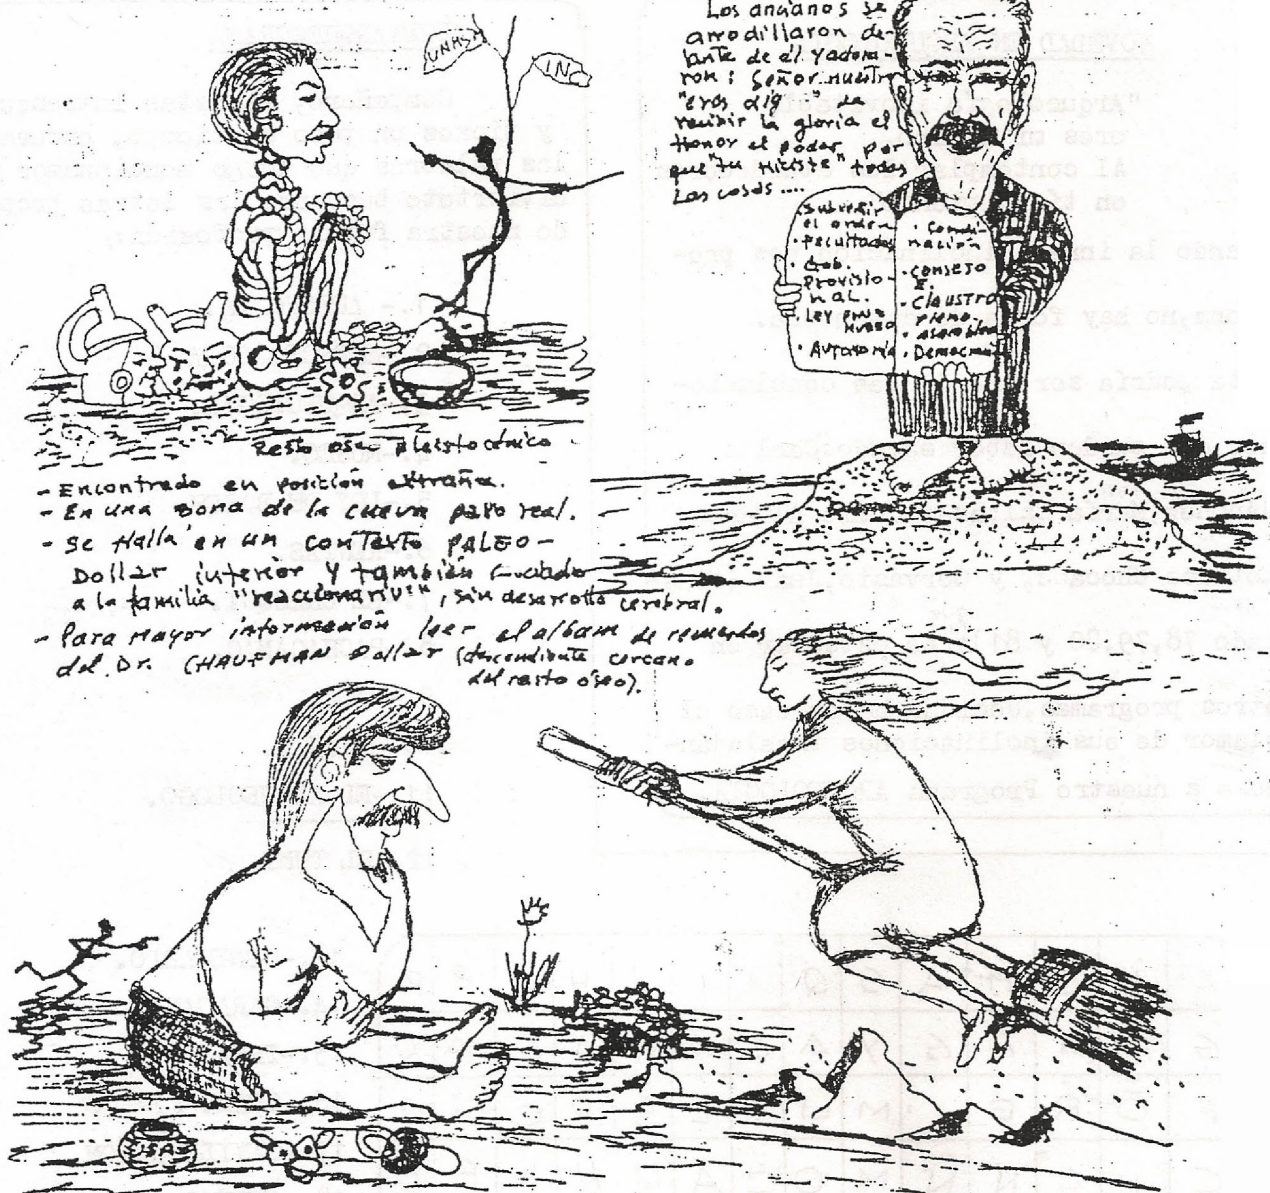 UNMSM
IN
Resto oseo pleistocénico
- Encontrado en posición extraña.
- En una zona de la cueva pavo real.
- Se Halla en un contexto PALEO-
Dollar inferior y también
a la familia "reaccionariu", sin desarrollo cerebral.
- Para mayor información leer el album de recuerdos
del Dr. CHAUFMAN Dollar (descendiente cercano
del resto óseo).
Los ancianos se
arrodillaron de-
lante de él y adora-
ron: Señor nuestro
"eres dig " de
recibir la gloria el
Honor el poder, por
que "tu hiciste" todas
Las cosas....
• Subvertir
el orden
• Facultades
• Gob.
Provisio-
nal.
• Ley
• AUTONOMÍA
• Coordi-
nación
• Consejo
E.
• CLAUSTRO
Pleno
asamblea
• Democracia
USA